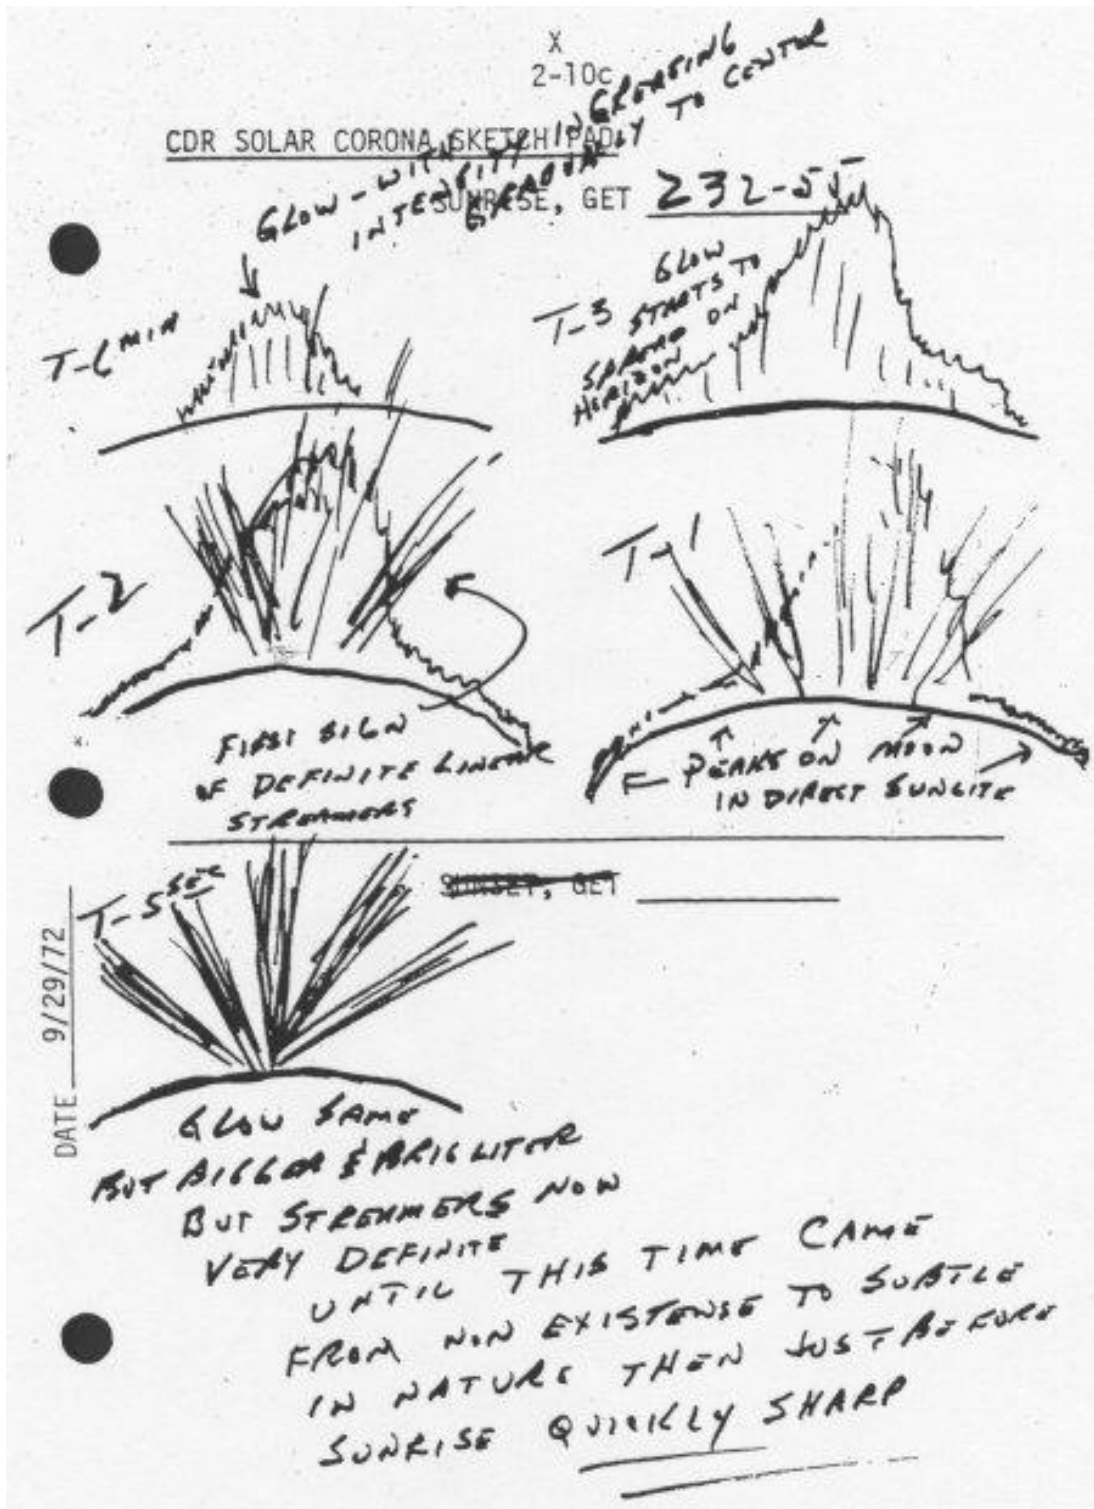 X
2-10c
CDR SOLAR CORONA SKETCH PAD
SUNRISE, GET 232-55
GLOW - WITH
INTENSITY INCREASING
GRADUALLY TO CENTER
T-6 MIN
T-3
GLOW
STARTS TO
SPREAD ON
HORIZON
T-2
T-1
FIRST SIGN
OF DEFINITE LINEAR
STREAMERS
PEAKS ON MOON
IN DIRECT SUNLITE
T-5 SEC
SUNSET, GET
DATE 9/29/72
GLOW SAME
BUT BIGGER & BRIGLITER
BUT STREAMERS NOW
VERY DEFINITE
UNTIL THIS TIME CAME
FROM NON EXISTENSE TO SUBTLE
IN NATURE THEN JUST BEFORE
SUNRISE QUICKLY SHARP